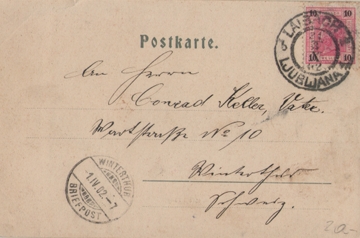 Postkarte.
10 10
LAIBACH 1
LJUBLJANA
An Herrn
Conrad Keller,
Wartstraße No 10
Winterthur
Schweiz.
WINTERTHUR
1.IV.02.-7
BRIEF-POST